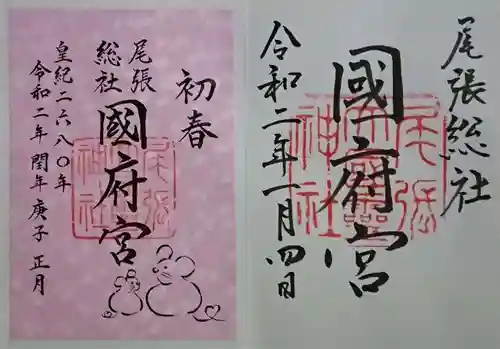 初春
尾張
総社
國府宮
皇紀二六八〇年
令和二年閏年庚子正月
尾張総社
國府宮
令和二年一月四日